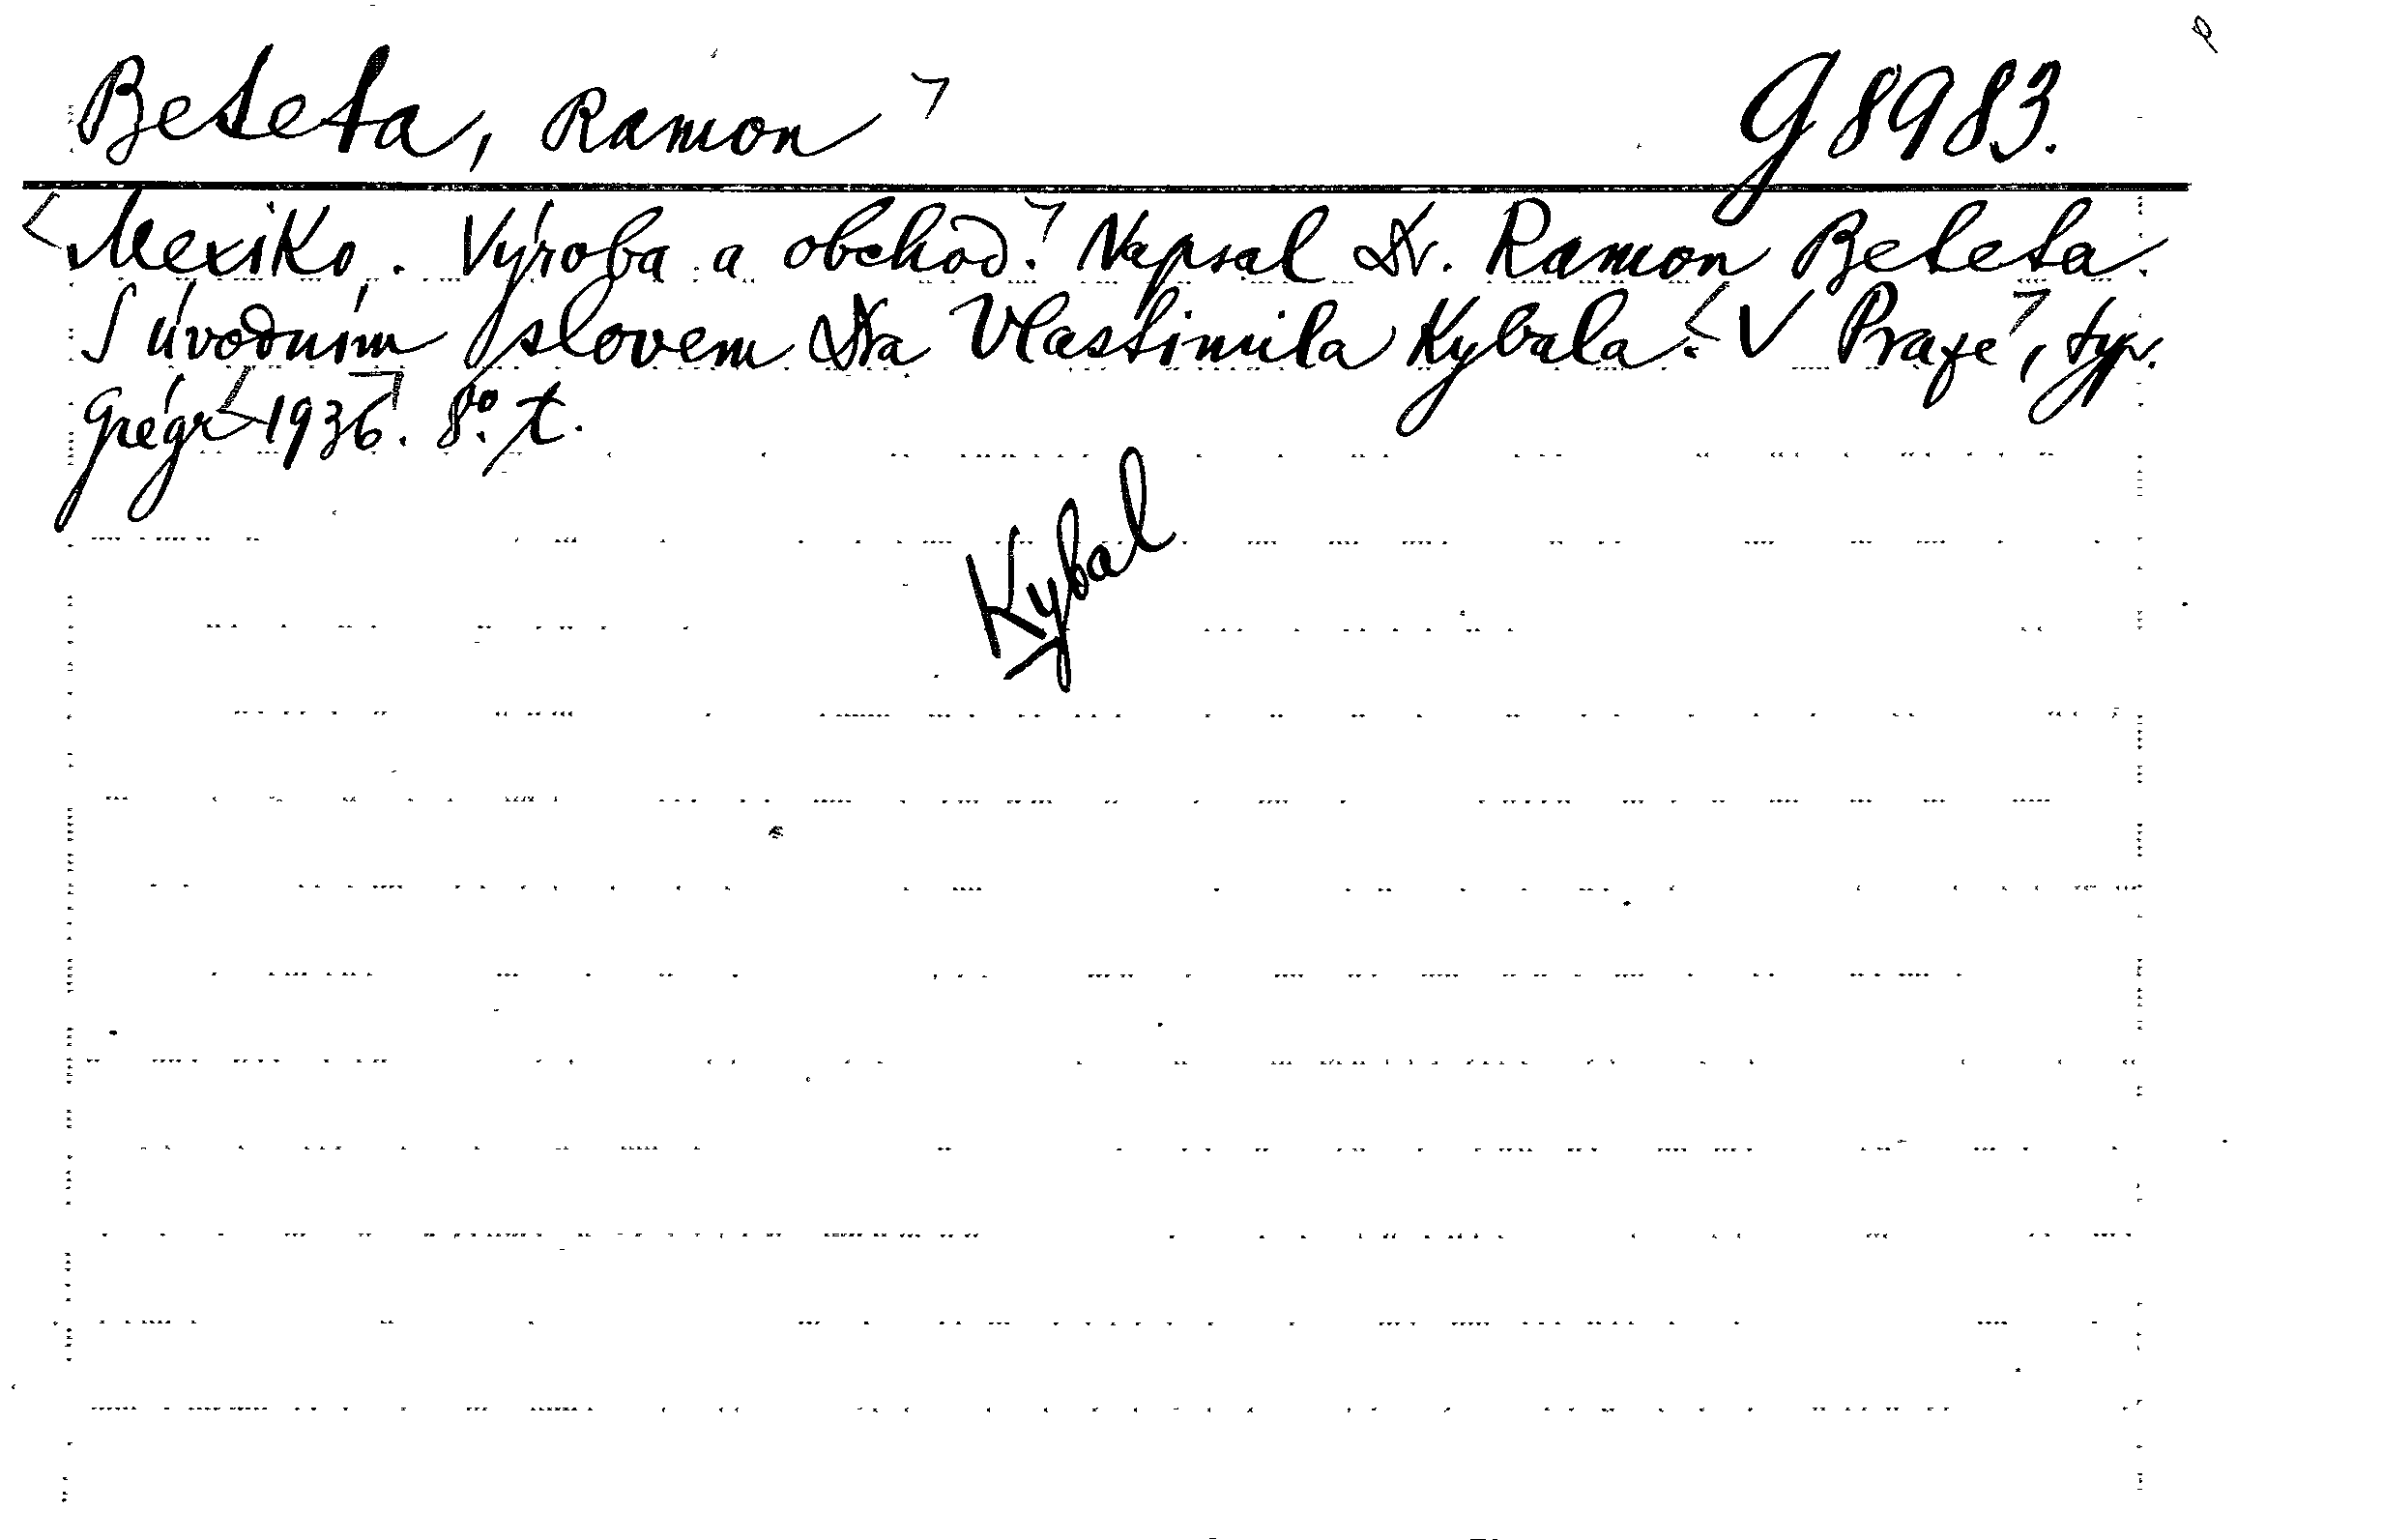 Beteta, Ramon G 8983.
Mexiko. Výroba a obchod. Napsal Dr. Ramon Beteta.
S úvodním slovem Dra Vlastimila Kybala. V Praze, typ.
Grégr 1936. 8° t.
Kybal